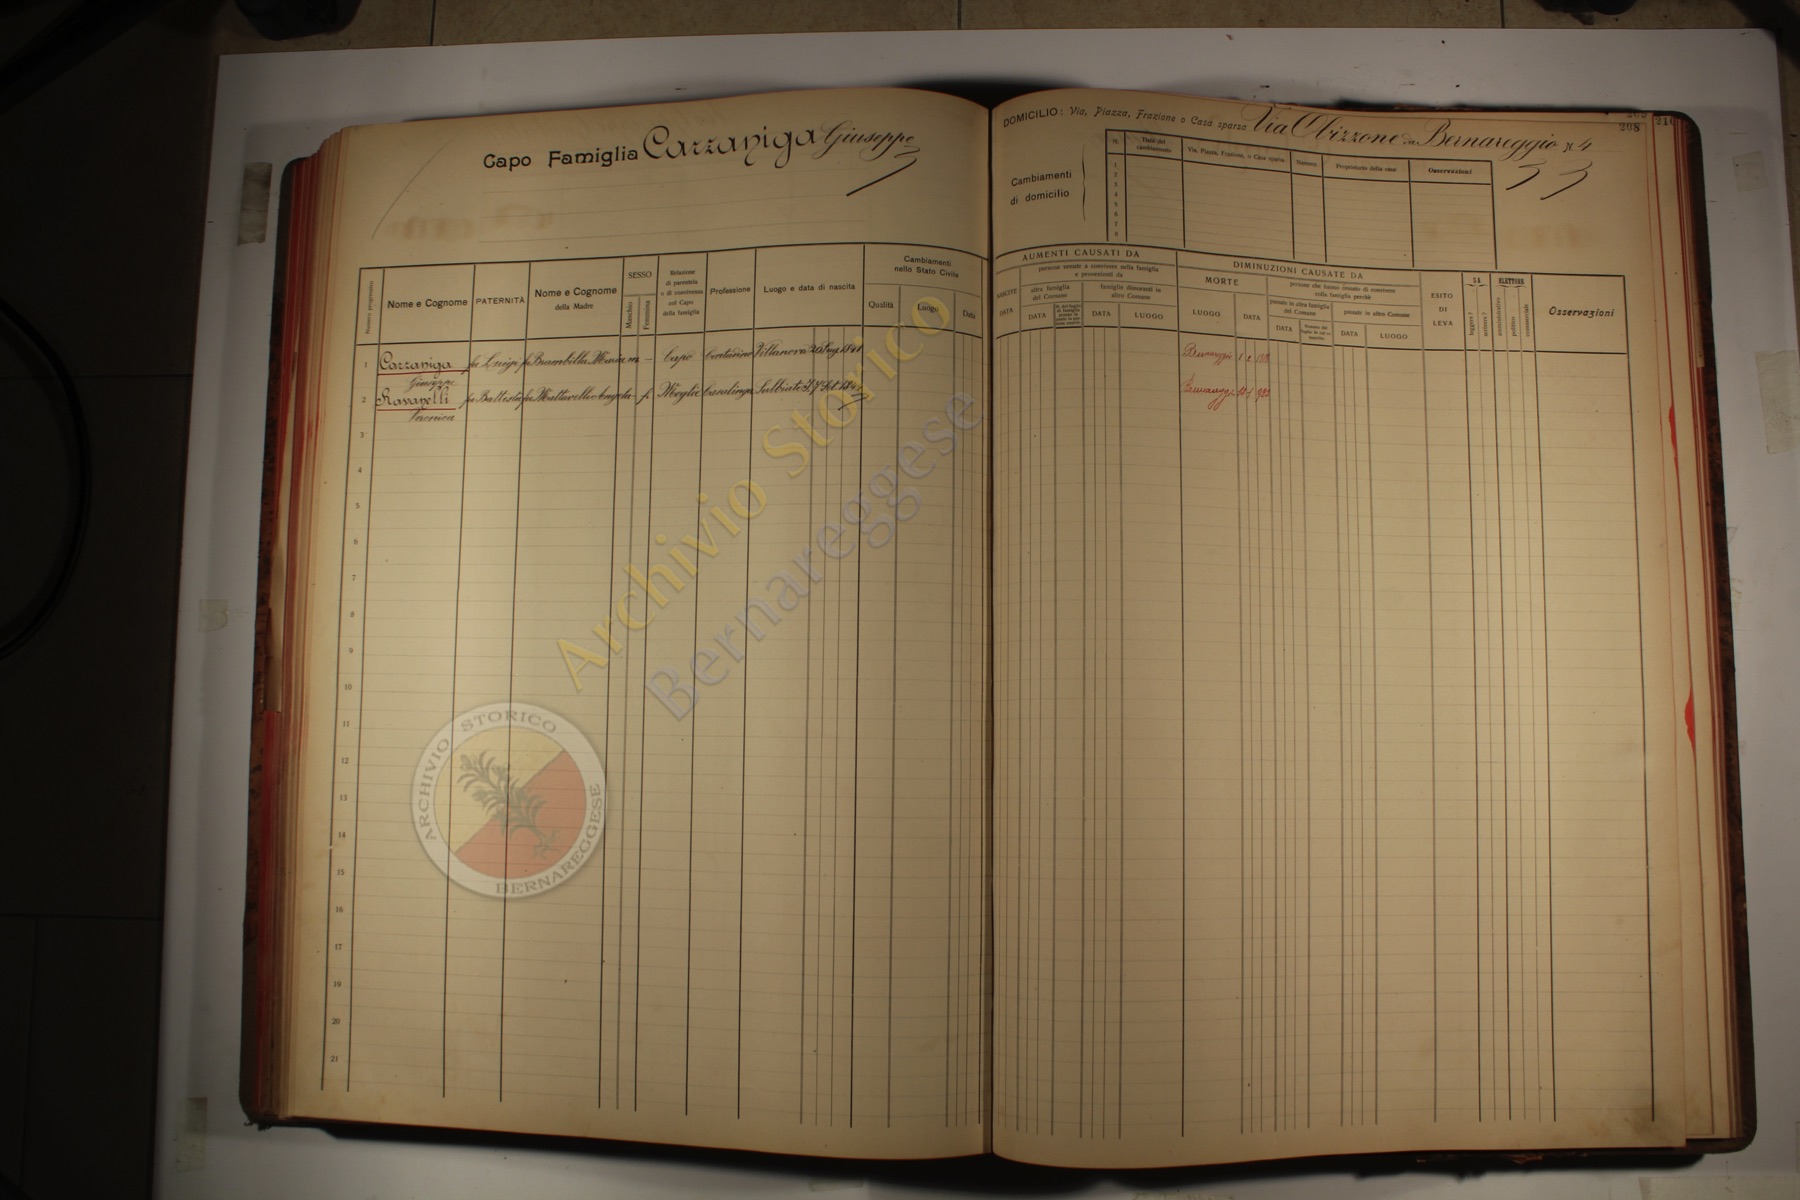 Capo Famiglia Cazzaniga Giuseppe
DOMICILIO: Via, Piazza, Frazione o Casa sparsa Via Obizzone da Bernareggio N. 4
208
210
Cambiamenti di domicilio
N.
Data del cambiamento
Via, Piazza, Frazione, o Casa sparsa
Numero
Proprietario della casa
Osservazioni
1
2
3
4
5
6
7
8
Numero progressivo
Nome e Cognome
PATERNITÀ
Nome e Cognome della Madre
SESSO
Maschio
Femmina
Relazione di parentela o di convivenza col Capo della famiglia
Professione
Luogo e data di nascita
Cambiamenti nello Stato Civile
Qualità
Luogo
Data
AUMENTI CAUSATI DA
NASCITE
DATA
persone venute a convivere nella famiglia e provenienti da
altra famiglia del Comune
DATA
famiglie dimoranti in altro Comune
DATA
LUOGO
DIMINUZIONI CAUSATE DA
MORTE
LUOGO
DATA
persone che hanno cessato di convivere colla famiglia perchè
passate in altra famiglia del Comune
DATA
passate in altro Comune
DATA
LUOGO
ESITO DI LEVA
SA
leggere?
scrivere?
ELETTORE
amministrativo
politico
commerciale
Osservazioni
1 Cazzaniga Giuseppe fu Luigi fu Brambilla Maria m – Capo Contadino Villanova 20 Lug. 1841
2 Ravanelli Veronica fu Battista fu Mattavelli Angela – f. Moglie Casalinga Sulbiate
3
4
5
6
7
8
9
10
11
12
13
14
15
16
17
18
19
20
21
Archivio Storico
Bernareggese
ARCHIVIO STORICO
BERNAREGGESE